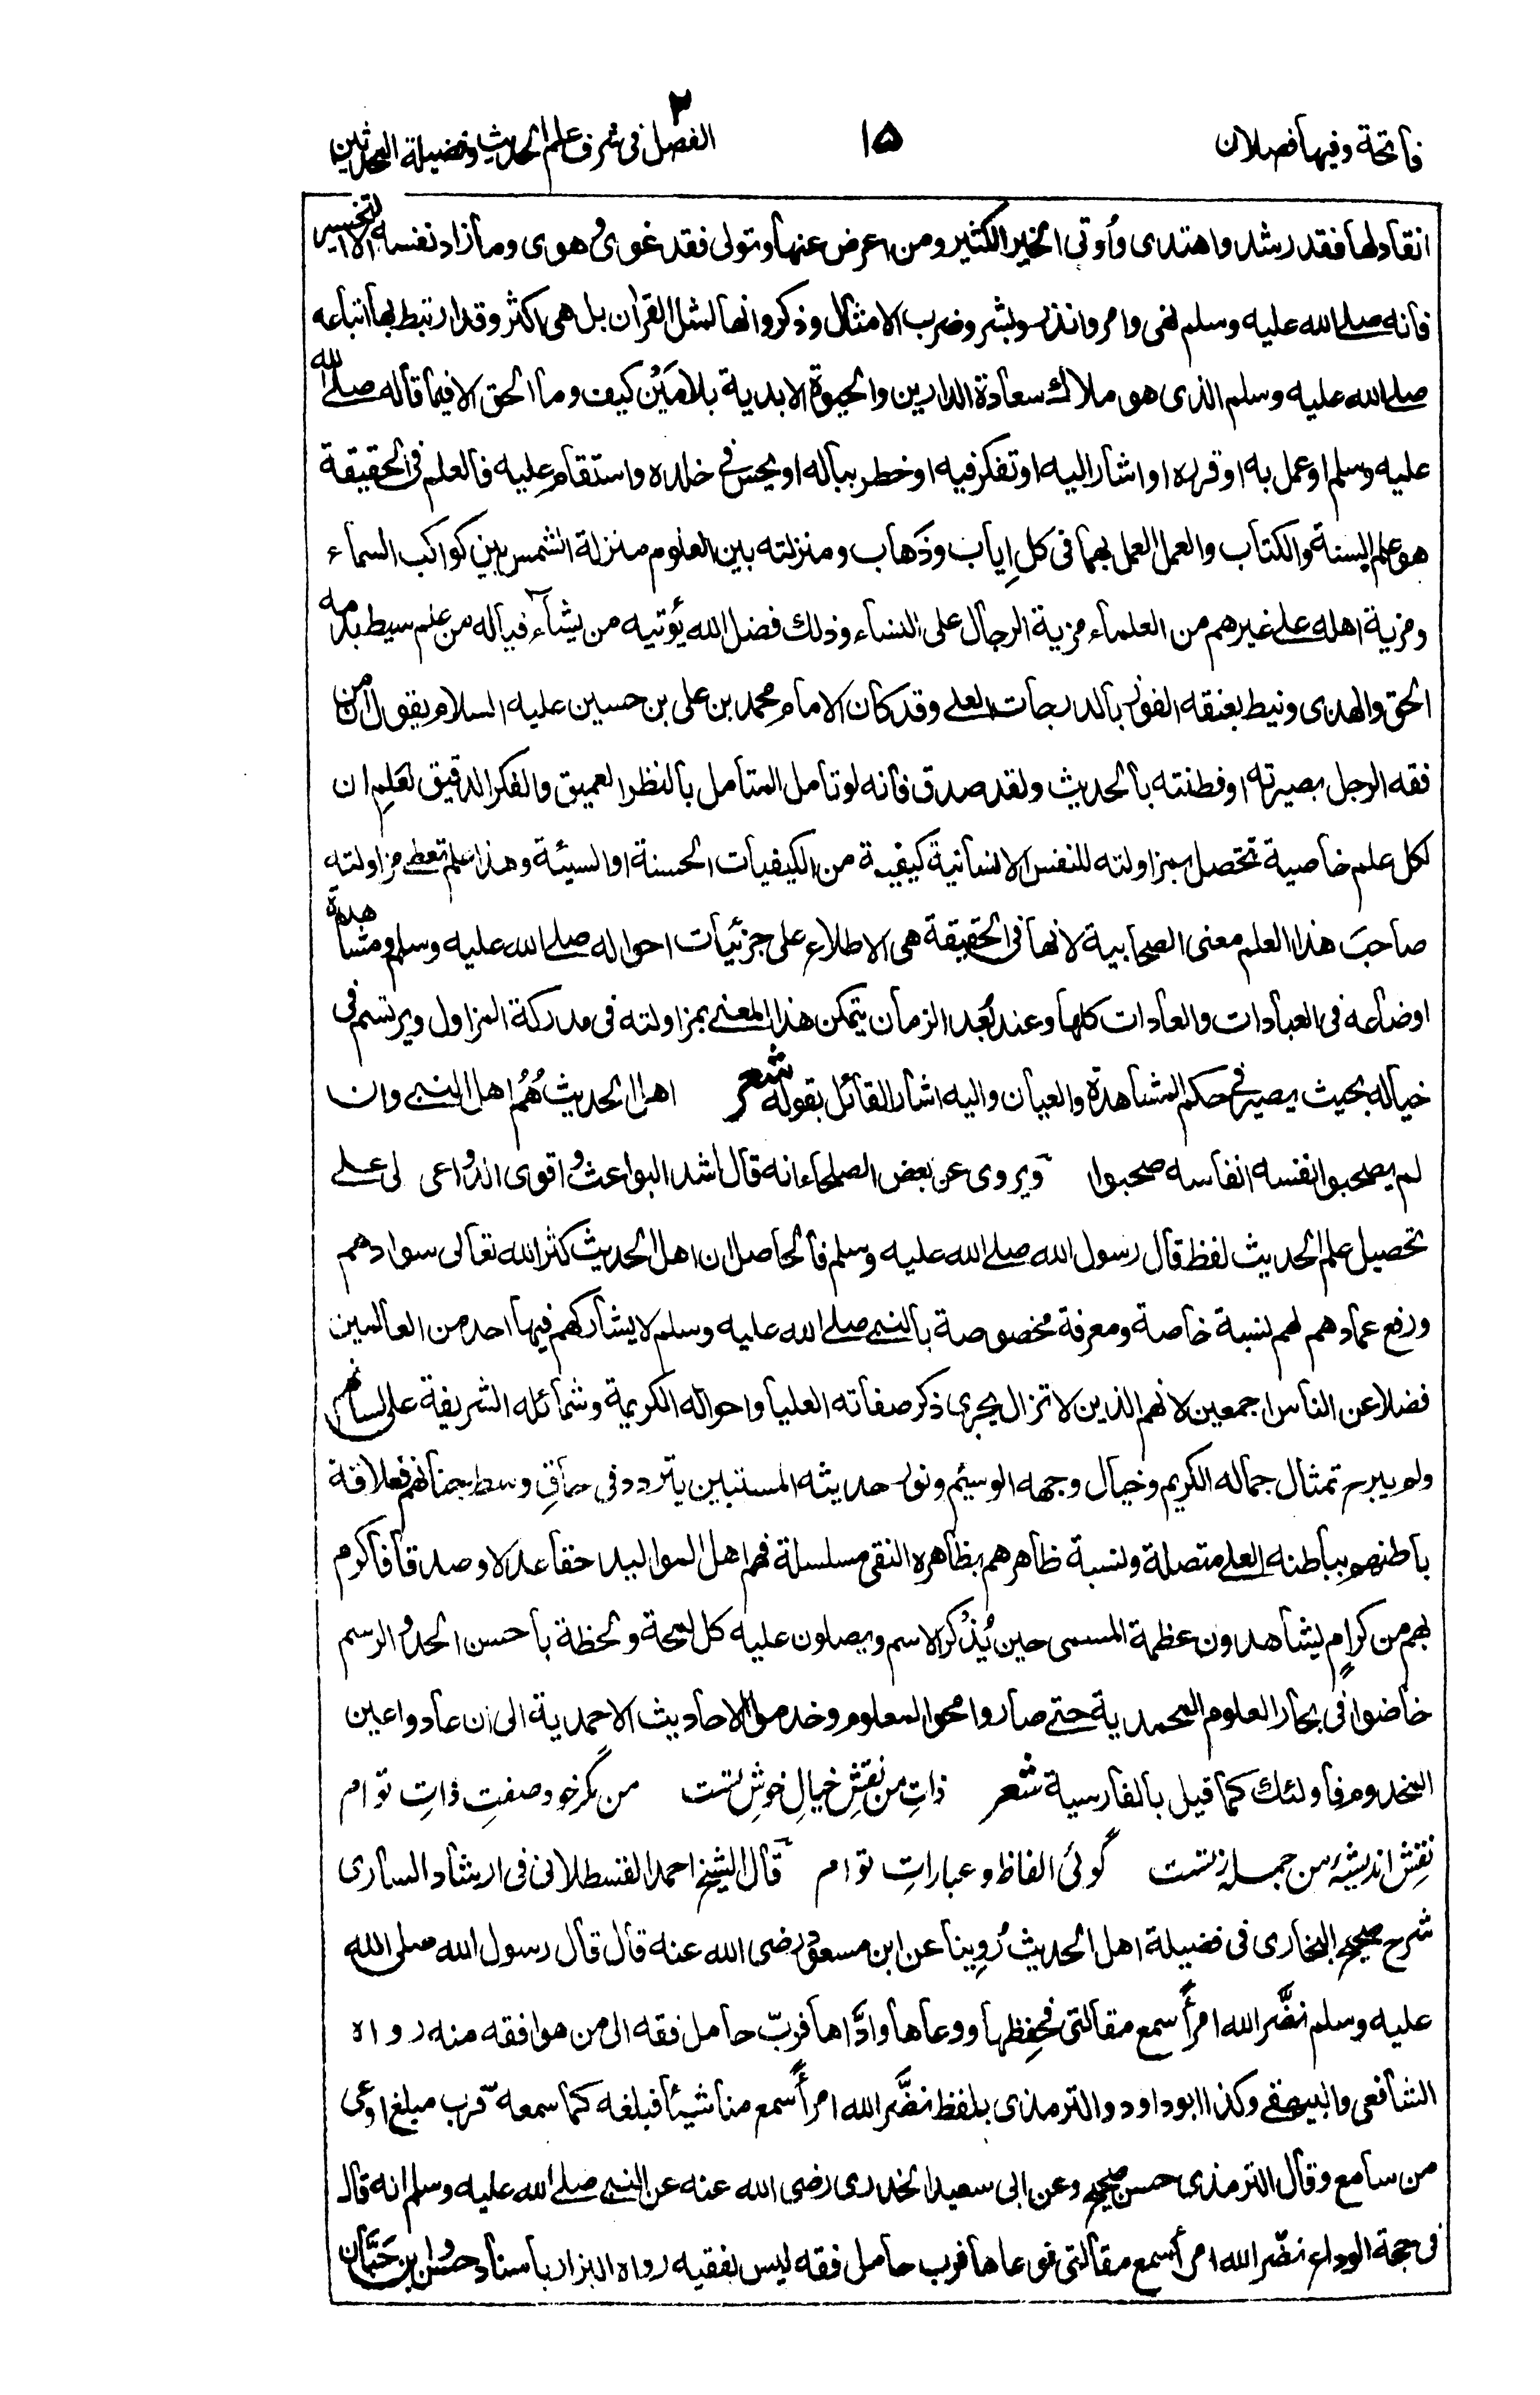 فاتحة وفيها فصلان
١٥
الفصل ٢ فی شرف علم الحدیث وفضیلة المحدثین
انقاد لها فقد رشد واهتدى وأوتي الخير الكثير ومن اعرض عنها وتولى فقد غوى وهوى وما زاد نفسه الا التخسير
فانه صلى الله عليه وسلم نهى وامر وانذر وبشر وضرب الامثال وذكر وانها لمثل القرآن بل هي اكثر وقد ارتبط بها اتباعه
صلى الله عليه وسلم الذى هو ملاك سعادة الدارين والحيوة الابدية بلا مَيْن كيف وما الحق الا فيما قاله صلى الله
عليه وسلم او عمل به او قرره او اشار اليه او تفكر فيه او خطر بباله او يحس في خلده واستقام عليه فالعلم فى الحقيقة
هو علم السنة والكتاب والعمل العمل بهما فى كل اِياب وذَهاب ومنزلته بين العلوم منزلة الشمس بين كواكب السماء
ومزية اهله على غيرهم من العلماء مزية الرجال على النساء وذلك فضل الله يؤتيه من يشاء فياله من علم سيط بدمه
الحق والهدى ونيط بعنقه الفوز بالدرجات العلى وقد كان الامام محمد بن على بن حسين عليه السلام يقول ان من
فقه الرجل بصيرته او فطنته بالحديث ولقد صدق فانه لو تامل المتامل بالنظر العميق والفكر الدقيق لعَلِم ان
لكل علم خاصية تحصل بمزاولته للنفس الانسانية كيفية من الكيفيات الحسنة او السيئة وهذا علم تعطى مزاولته
صاحبَ هذا العلم معنى الصحابية لانها فى الحقيقة هى الاطلاع على جزئيات احواله صلى الله عليه وسلم ومشاهدة
اوضاعه فى العبادات والعادات كلها وعند بُعد الزمان يتمكن هذا المعنى بمزاولته فى مدركة المزاول ويرتسم فى
خياله بحيث يصير فى حكم المشاهدة والعيان واليه اشار القائل بقوله شعر اهل الحديث هُمُ اهل النبى وان
لم يصحبوا نفسه انفاسه صحبوا ويروى عن بعض الصلحاء انه قال اشد البواعث واقوى الدواعى لى على
تحصيل علم الحديث لفظ قال رسول الله صلى الله عليه وسلم فالحاصل ان اهل الحديث كثر الله تعالى سوادهم
ورفع عمادهم لهم نسبة خاصة ومعرفة مخصوصة بالنبى صلى الله عليه وسلم لا يشاركهم فيها احد من العالمين
فضلا عن الناس اجمعين لانهم الذين لا تزال يجرى ذكر صفاته العليا واحواله الكريمة وشمائله الشريفة على لسانهم
ولم يبرح تمثال جماله الكريم وخيال وجهه الوسيم ونور حديثه المستبين يتردد فى حاق وسط جنانهم فعلاقة
باطنهم بباطنه العلى متصلة ونسبة ظاهرهم بظاهره النقى مسلسلة فهم اهل المواليد حقا عدلا وصدقا فاكرم
بهم من كرامٍ يشاهدون عظمة المسمى حين يُذكر الاسم ويصلون عليه كل لمحة ولحظة باحسن الحد والرسم
خاضوا فى بحار العلوم المحمدية حتى صاروا محو المعلوم وخدموا الاحاديث الاحمدية الى ان عادوا عين
المخدوم فاولئك كما قيل بالفارسية شعر ذاتِ من نقشِ خیالِ خوشِ تست من مگر خود صفتِ ذاتِ تو ام
نقشِ اندیشهٔ من جمله ز تست گوئی الفاظ و عباراتِ تو ام قال الشيخ احمد القسطلانى فى ارشاد السارى
شرح صحيح البخارى فى فضيلة اهل الحديث رُوِينا عن ابن مسعود رضى الله عنه قال قال رسول الله صلى الله
عليه وسلم نضَّر الله امرأً سمع مقالتى فحفِظها ووعاها وادّاها فربّ حامل فقه الى من هو افقه منه رواه
الشافعى والبيهقى وكذا ابو داود والترمذى بلفظ نضَّر الله امرأً سمع منا شيئا فبلغه كما سمعه فرب مبلغ اوعى
من سامع وقال الترمذى حسن صحيح وعن ابى سعيد الخدرى رضى الله عنه عن النبى صلى الله عليه وسلم انه قال
فى حجة الوداع نضّر الله امرأ سمع مقالتى فوعاها فرب حامل فقه ليس بفقيه رواه البزار باسناد حسن وابن حبان